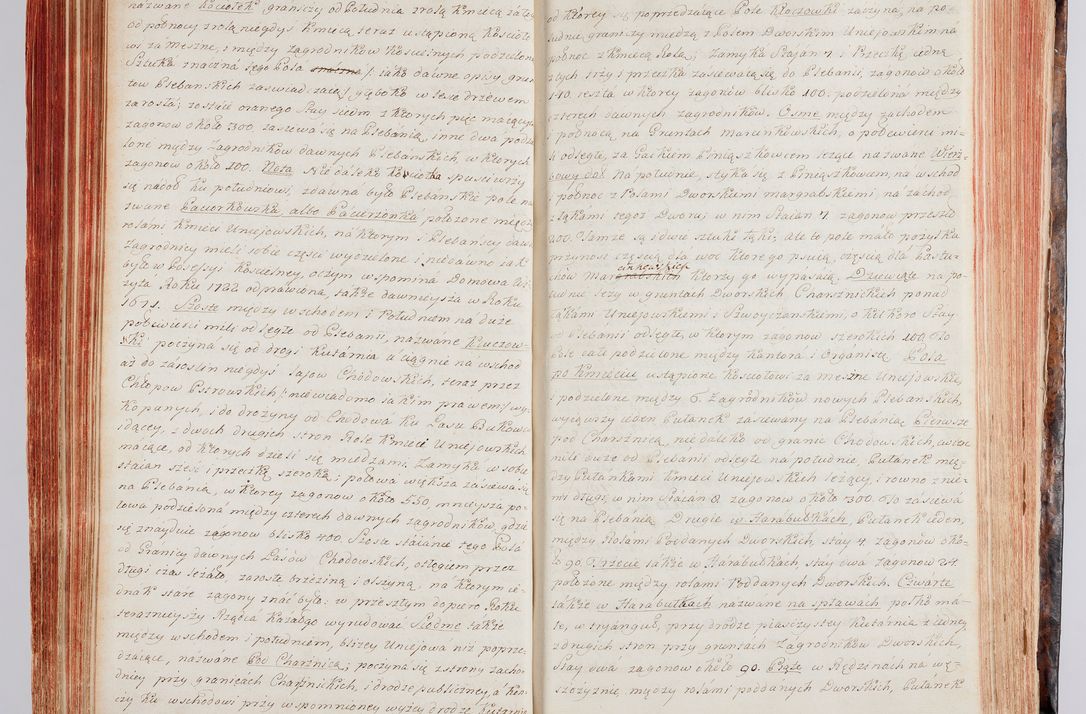 nazwane Kociołek graniczy od Południa z rolą kmiecą zaleg
od północy z rolą niegdyś kmiecą teraz ustąpioną Kościoło
wi za meszne, i między zagrodników kościelnych podzieloną
Sztuka znaczna tego Pola /: jako dawne opisy grun
tow Plebanskich zaświadczaią/ głęboko w lesie drzewem
zarosła; zostaie oranego Stay siedm z których pięc maiących
zagonow około 300, zasiewa się na Plebanią, inne dwa podzie
lone między Zagrodników dawnych Plebańskich, w których
zagonow około 100. Nota Nie daleko Kociołka spuściwszy
się nadoł ku południowi, zdawna było Plebanskie pole na
zwane Paciorkowska, albo Pacierzonka położone między
rolami kmieci Unieiowskich, na którym i Plebańscy dawni
zagrodnicy mieli sobie części wydzielone i niedawno iak
było w Possessyi kościelney, o czym wspomna Domowa Wi
zyta Roku 1722 odprawiona, także dawnieysza w Roku
1671. Szoste między wschodem i Południem na duże
pobiewieści mili odległe od Plebanii, nazwane Kluczow-
ski poczyna się od drogi Kularnia a ciągnie na wschod
aż do zaroslin niegdyś Lasow Chodowskich, teraz przez
Chłopow Pstrowskich /: niewiadomo iakim prawem:/ wy-
kopanych, i do drożyny od Chodowa ku Lasu Bukowa
idącey, z dwoch drugich stron Role kmieci Unieiowskich
maiące, od których dzieli się miedzami. Zamyka w sobie
staian szesc i przeczkę szeroką; połowa większa zasiewa się
na Plebanią, w ktorey zagonow około 550, mnieysza po-
łowa podzielona między czterech dawnych zagrodników, gdzie
się znayduie zagonow blisko 400. Szoste staianie tego Pola
od Granicy dawnych Lasów Chodowskich, odłogiem przez
długi czas leżało, zarosłe brzeziną i olszyną, na ktorym ie-
dnak stare zagony znać było: w przeszłym dopiero Roku
teraznieyszy Rządca kazał go wyrudować Siodme także
między wschodem i południem, bliżey Unieiowa niż poprze-
dzaiące, nazwane Pod Charznicą; poczyna się z strony zacho-
dniey przy granicach Charznickich, i drodze publiczney, a kon-
czy ku wschodowi przy wspomnioney wyżey drodze Kularnia
od ktorey się poprzedzaiące Pole Kluczowki zaczyna, na po-
łudnie graniczy miedzą z Polem Dworskim Unieiowskim na
północ z kmiecą Rolą; Zamyka Staian 7. i Przeczkę iedną
ztych trzy i przeczka zasiewaią się do Plebanii, zagonow około
140. reszta w ktorey zagonów blisko 100. podzielona między
czterech dawnych zagrodników. Osme między zachodem
i północą, na Gruntach marcinkowskich, o poćwierci mi-
li odległe, za Gaikiem Poniąszkowcem leżące nazwane Wierz-
bowy doł na południe, styka się z Poniąszkowcem, na wschod
i północ z Polami Dworskiemi margrabskiemi na zachod
z łąkami tegoż Dworu; w nim Staian 7. zagonow przeszło
200. Tamże są i dwie sztuki łąki; ale to pole mało pożytku
przynosi częścią dla woc ktorego psuią, częścią dla Pastu-
chow Marcinkowskich ktorzy go wypasaią. Dziewiąte na po-
łudnie leży w gruntach Dworskich Charznickich ponad
Łąkami Unieiowskiemi i Szwoyczanskiemi, o kilkoro Stay
od Plebanii odległe, w ktorym zagonow szerokich 100. To
Pole całe podzielone między Kantora i Organistę Rola
po kmieciu ustąpione kosciołowi za meszne Unieiowskie,
i podzielone między 6. zagrodników nowych Plebanskich,
wyiąwszy ieden Pułanek zasiewany na Plebanią Pierwsze
pod Charznicą niedaleko od granic Chodowskich, ćwierc
mile duże od Plebanii odległe na południe, Pułanek mię-
dzy Pułankami Kmieci Unieiowskich leżący, i rowno z nie-
mi długi, w nim Staian 8. zagonow około 300. To zasiewa
się na Plebanią Drugie w Harabułkach, Pułanek ieden,
między Rolami Poddanych Dworskich, stay 4. zagonów oko-
ło 90. Trzecie także w Harabułkach, stay dwa zagonow 24.
położone między rolami Poddanych Dworskich. Czwarte
także w Harabułkach nazwane na spławach, polko ma-
łe, w tryanguł, przy drodze piasczystey Kularnia z iedney
z drugich stron przy gruntach zagrodników Dworskich,
Stay dwa zagonow około 90. Piąte w Rędzinach na wę-
szczyznie, między rolami poddanych Dworskich, Pułanek